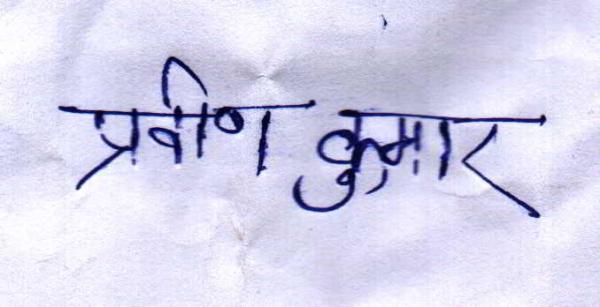 प्रवीण कुमार